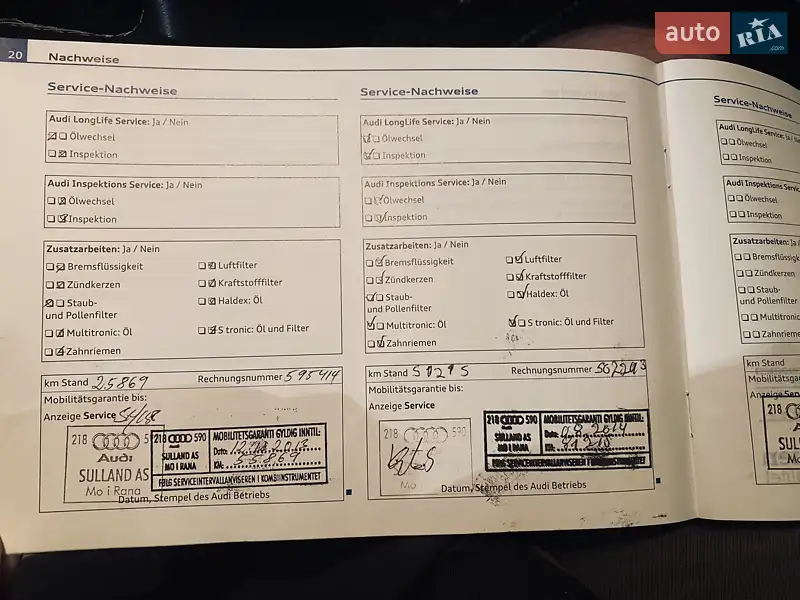 auto RIA .com
20 Nachweise
Service-Nachweise
Audi LongLife Service: Ja / Nein
Ölwechsel
Inspektion
Audi Inspektions Service: Ja / Nein
Ölwechsel
Inspektion
Zusatzarbeiten: Ja / Nein
Bremsflüssigkeit
Luftfilter
Zündkerzen
Kraftstofffilter
Staub-
und Pollenfilter
Haldex: Öl
Multitronic: Öl
S tronic: Öl und Filter
Zahnriemen
km Stand 25869 Rechnungsnummer 595414
Mobilitätsgarantie bis:
Anzeige Service
218 590
Audi
SULLAND AS
Mo i Rana
218 590
SULLAND AS
MO I RANA
MOBILITETSGARANTI GYLDIG INNTIL:
Dato:
KM: 55869
FØLG SERVICEINTERVALLANVISEREN I KOMBIINSTRUMENTET
Datum, Stempel des Audi Betriebs
Service-Nachweise
Audi LongLife Service: Ja / Nein
Ölwechsel
Inspektion
Audi Inspektions Service: Ja / Nein
Ölwechsel
Inspektion
Zusatzarbeiten: Ja / Nein
Bremsflüssigkeit
Luftfilter
Zündkerzen
Kraftstofffilter
Staub-
und Pollenfilter
Haldex: Öl
Multitronic: Öl
S tronic: Öl und Filter
Zahnriemen
km Stand 51215 Rechnungsnummer
Mobilitätsgarantie bis:
Anzeige Service
218 590
Mo
218 590
SULLAND AS
MO I RANA
MOBILITETSGARANTI GYLDIG INNTIL:
Dato:
KM:
FØLG SERVICEINTERVALLANVISEREN I KOMBIINSTRUMENTET
Datum, Stempel des Audi Betriebs
Service-Nachweise
Audi LongLife Service: Ja
Ölwechsel
Inspektion
Audi Inspektions Service
Ölwechsel
Inspektion
Zusatzarbeiten: Ja
Bremsflüssig
Zündkerzen
Staub-
und Pollenfilter
Multitronic: Öl
Zahnriemen
km Stand
Mobilitätsgaran
Anzeige Ser
218
Au
SULL
Mo i